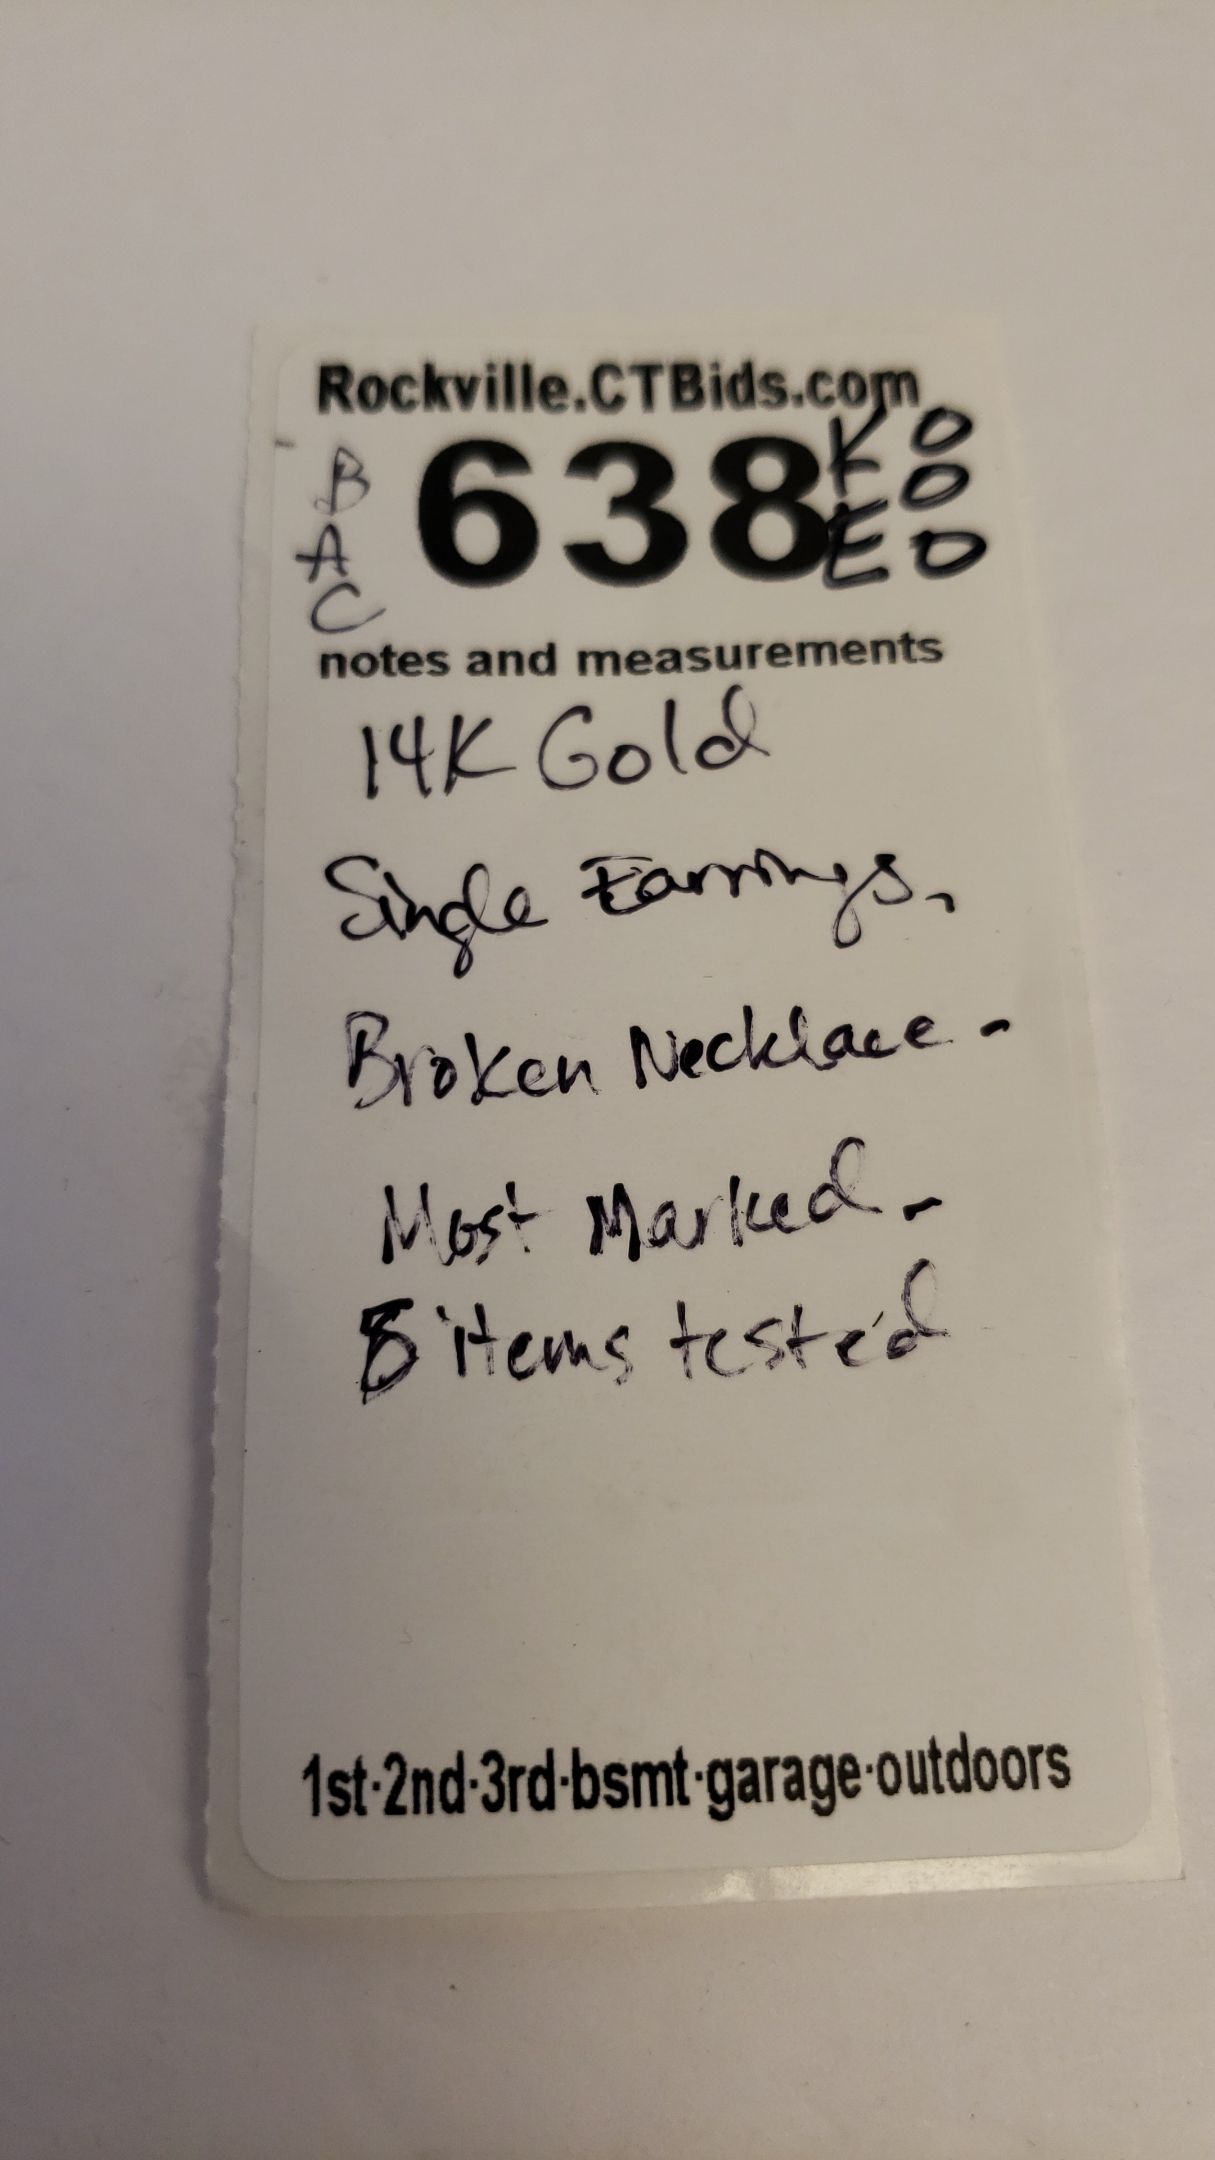 Rockville.CTBids.com
B
A
C
638
K O
O
E O
notes and measurements
14K Gold
Single Earrings,
Broken Necklace -
Most Marked -
items tested
1st·2nd·3rd·bsmt·garage·outdoors